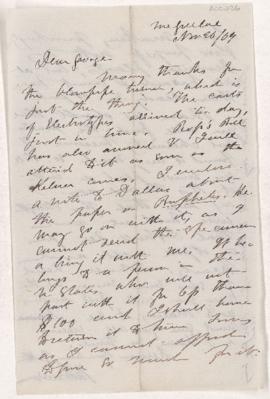 Nov 26/89
Dear George
Many thanks for
the blowpipe burner, which is
just the thing. The casts
of Electrotypes arrived to-day,
just in time. Rop's Bill
has also arrived & I will
attend to it as soon as the
comes. I enclose
a note to Dallas about
the paper on He
may go on with it, as I
cannot send the specimen
or bring it with me. It be-
longs to a person in the
U States who will not
part with it for less than
$100 and I shall have
to return it to him
as I cannot afford
to give so much for it.